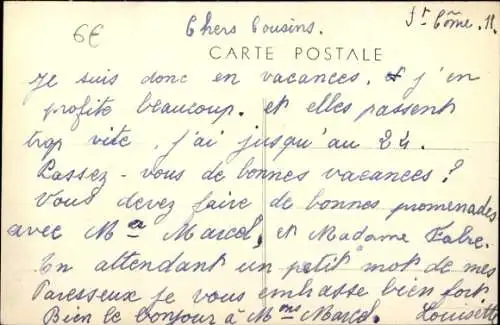 6€
Chers Cousins.
St Côme. 11.
CARTE POSTALE
Je suis donc en vacances. et j'en
profite beaucoup. et elles passent
trop vite, j'ai jusqu'au 24.
Passez-vous de bonnes vacances?
Vous devez faire de bonnes promenades
avec Ma Marcel, et Madame Fabre.
En attendant un petit mot de mes
Paresseux je vous embrasse bien fort
Bien le bonjour à Mme Marcel. Louisett